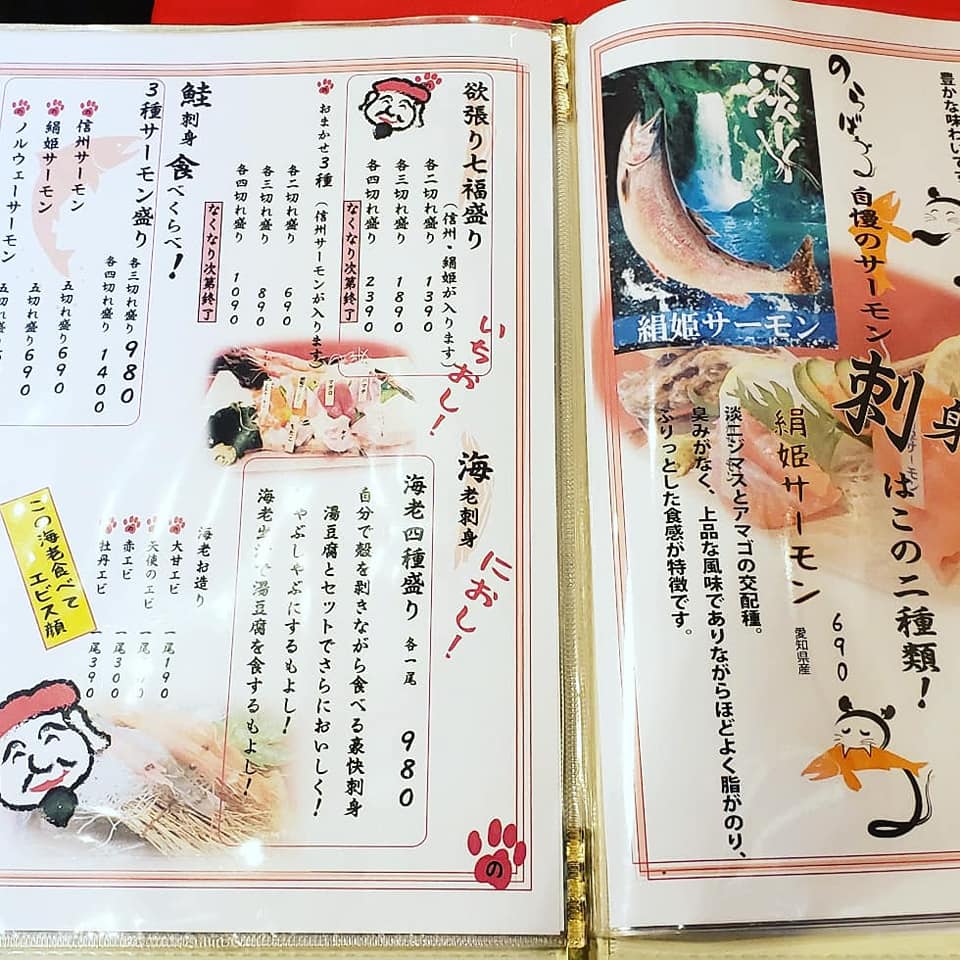 豊かな味わいです
のらばる自慢のサーモン
刺身はこの二種類!
淡水
絹姫サーモン
絹姫サーモン 690
愛知県産
淡ニジマスとアマゴの交配種。
臭みがなく、上品な風味でありながらほどよく脂がのり、
ぷりっとした食感が特徴です。
欲張り七福盛り
(信州・絹姫が入ります)
各二切れ盛り 1390
各三切れ盛り 1890
各四切れ盛り 2390
なくなり次第終了
の おまかせ3種
(信州サーモンが入ります)
各二切れ盛り 690
各三切れ盛り 890
各四切れ盛り 1090
なくなり次第終了
いちおし!
鮭刺身食べくらべ!
3種サーモン盛り
各三切れ盛り 980
各四切れ盛り 1400
の 信州サーモン 五切れ盛り 690
の 絹姫サーモン 五切れ盛り 690
の ノルウェーサーモン 五切れ盛り
海老刺身
におし!
海老四種盛り 各一尾 980
自分で殻を剥きながら食べる豪快刺身
湯豆腐とセットでさらにおいしく!
しゃぶしゃぶにするもよし!
海老生 湯豆腐を食するもよし!
海老お造り
の 大甘エビ 一尾190
天使のエビ 一尾
の 赤エビ 一尾300
の 牡丹エビ 一尾390
この海老食べて
エビス顔
の